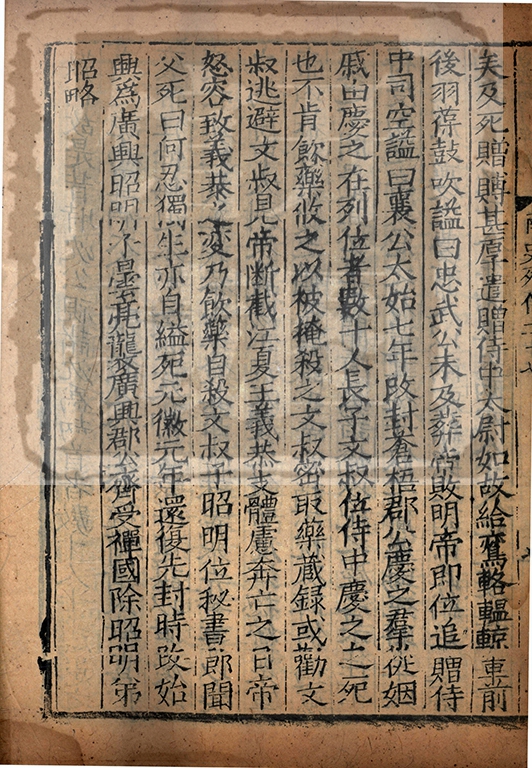 矣及死贈賻甚厚遣贈侍中太尉如故給鸞輅轀輬車前
後羽葆鼓吹諡曰忠武公未及葬帝敗明帝即位追贈侍
中司空諡曰襄公太始七年改封蒼梧郡公慶之羣從姻
戚由慶之在列位者數十人長子文叔位侍中慶之之死
也不肯飲藥攸之以被掩殺之文叔密取藥藏録或勸文
叔逃避文叔見帝斷截江夏王義恭支體慮奔亡之日帝
怒容致義恭之變乃飲藥自殺文叔子昭明位秘書郎聞
父死曰何忍獨生亦自縊死元徽元年還復先封時改始
興爲廣興昭明子曇亮襲廣興郡公齊受禪國除昭明弟
昭略